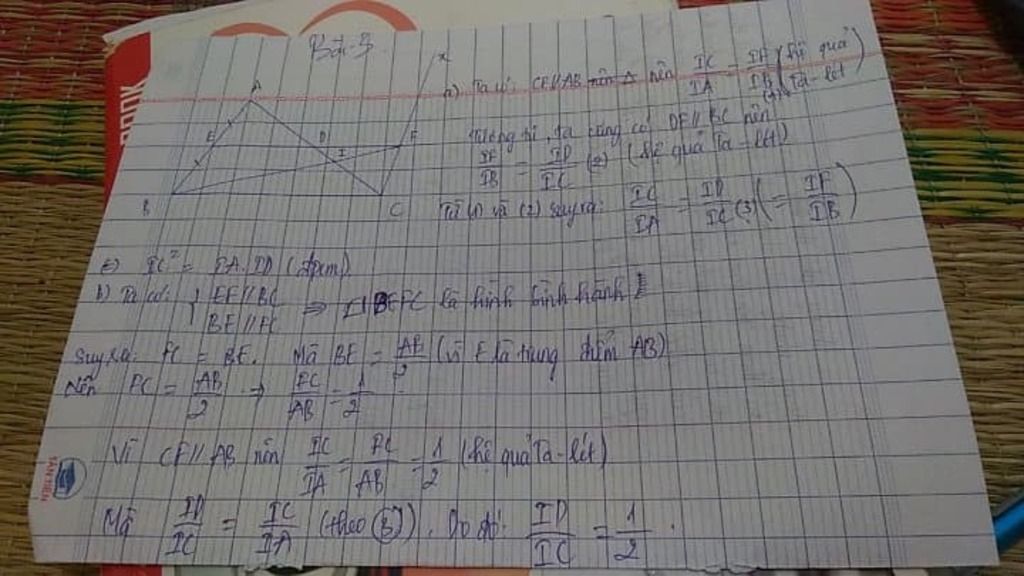 Bài 3
x
A
E
D
F
I
B
C
a) Ta có: CF//AB nên IC/IA = IF/IB (1) (hệ quả Ta-lét)
Tương tự ta cũng có DF//BC nên
IF/IB = ID/IC (2) (hệ quả Ta-lét)
Từ (1) và (2) suy ra: IC/IA = ID/IC (3) (= IF/IB)
IC² = IA.ID (đpcm)
b) Ta có: { EF//BC
BE//FC ⇒ BEFC là hình bình hành
Suy ra: FC = BE. Mà BE = AB/2 (vì E là trung điểm AB)
Nên FC = AB/2 → FC/AB = 1/2
Vì CF//AB nên IC/IA = FC/AB = 1/2 (hệ quả Ta-lét)
Mà ID/IC = IC/IA (theo (3)). Do đó: ID/IC = 1/2.